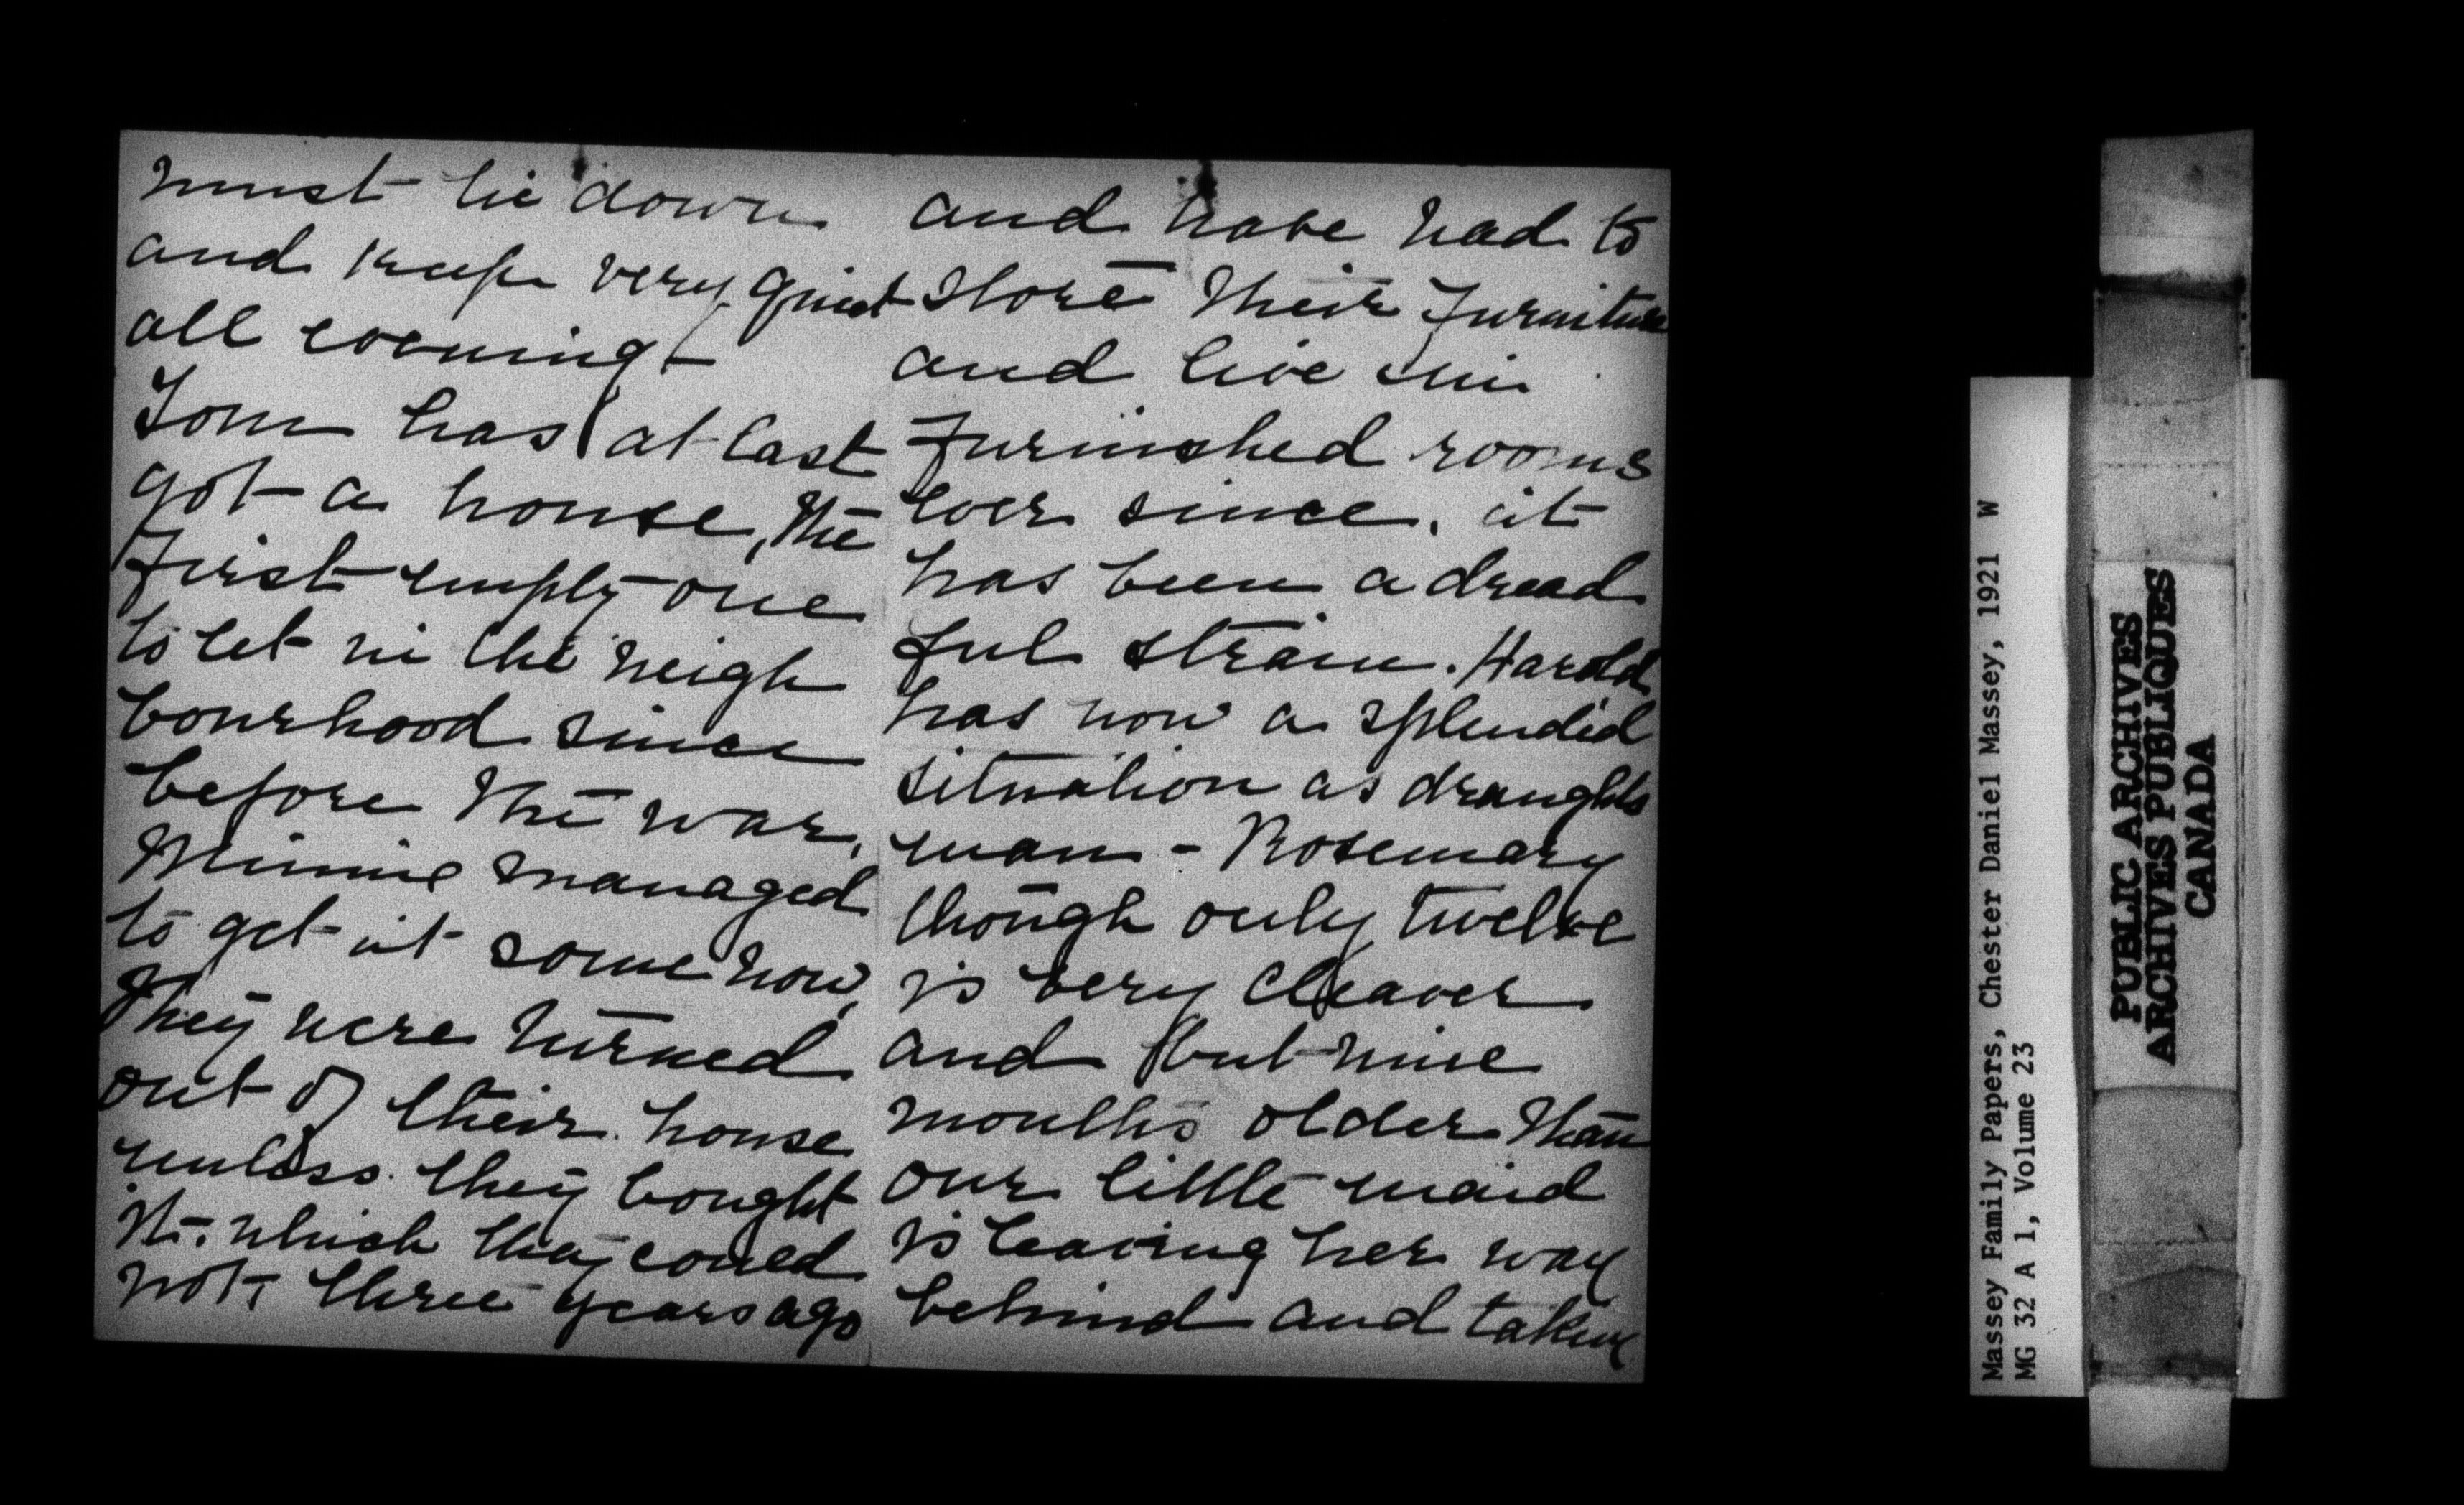 must lie down
and keep very quiet
all evening
Tom has at last
got a house, the
first empty one
to let in the neigh
bourhood since
before the war,
Minnie managed
to get it some how,
They were turned
out of their house
unless they bought
it, which they could
not, three years ago
and have had to
store their furniture
and live in
furnished rooms
ever since, it
has been a dread
ful strain. Harold
has now a splendid
situation as draughts
man - Rosemary
though only twelve
is very cleaver
and but nine
months older than
our little maid
is leaving her way
behind and taking
Massey Family Papers, Chester Daniel Massey, 1921 W
MG 32 A 1, Volume 23
PUBLIC ARCHIVES
ARCHIVES PUBLIQUES
CANADA